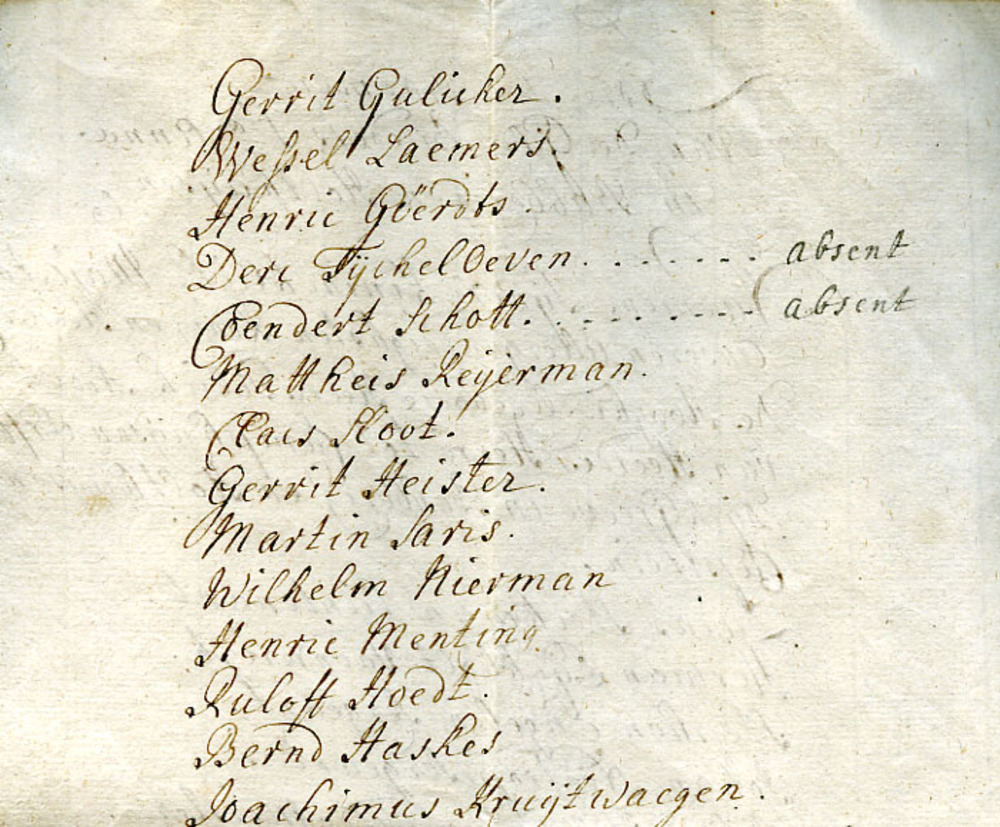 Gerrit Gulicker.
Wessel Laemers.
Henric Göerdts.
Derc Tÿchel Oeven. . . . . . . . absent
Coendert Schott. . . . . . . . . absent
Mattheis Reÿerman.
Claes Sloot.
Gerrit Heister.
Martin Saris.
Wilhelm Nierman
Henric Menting.
Ruloff Hoedt.
Bernd Haskes
Joachimus Kruÿtwaegen.